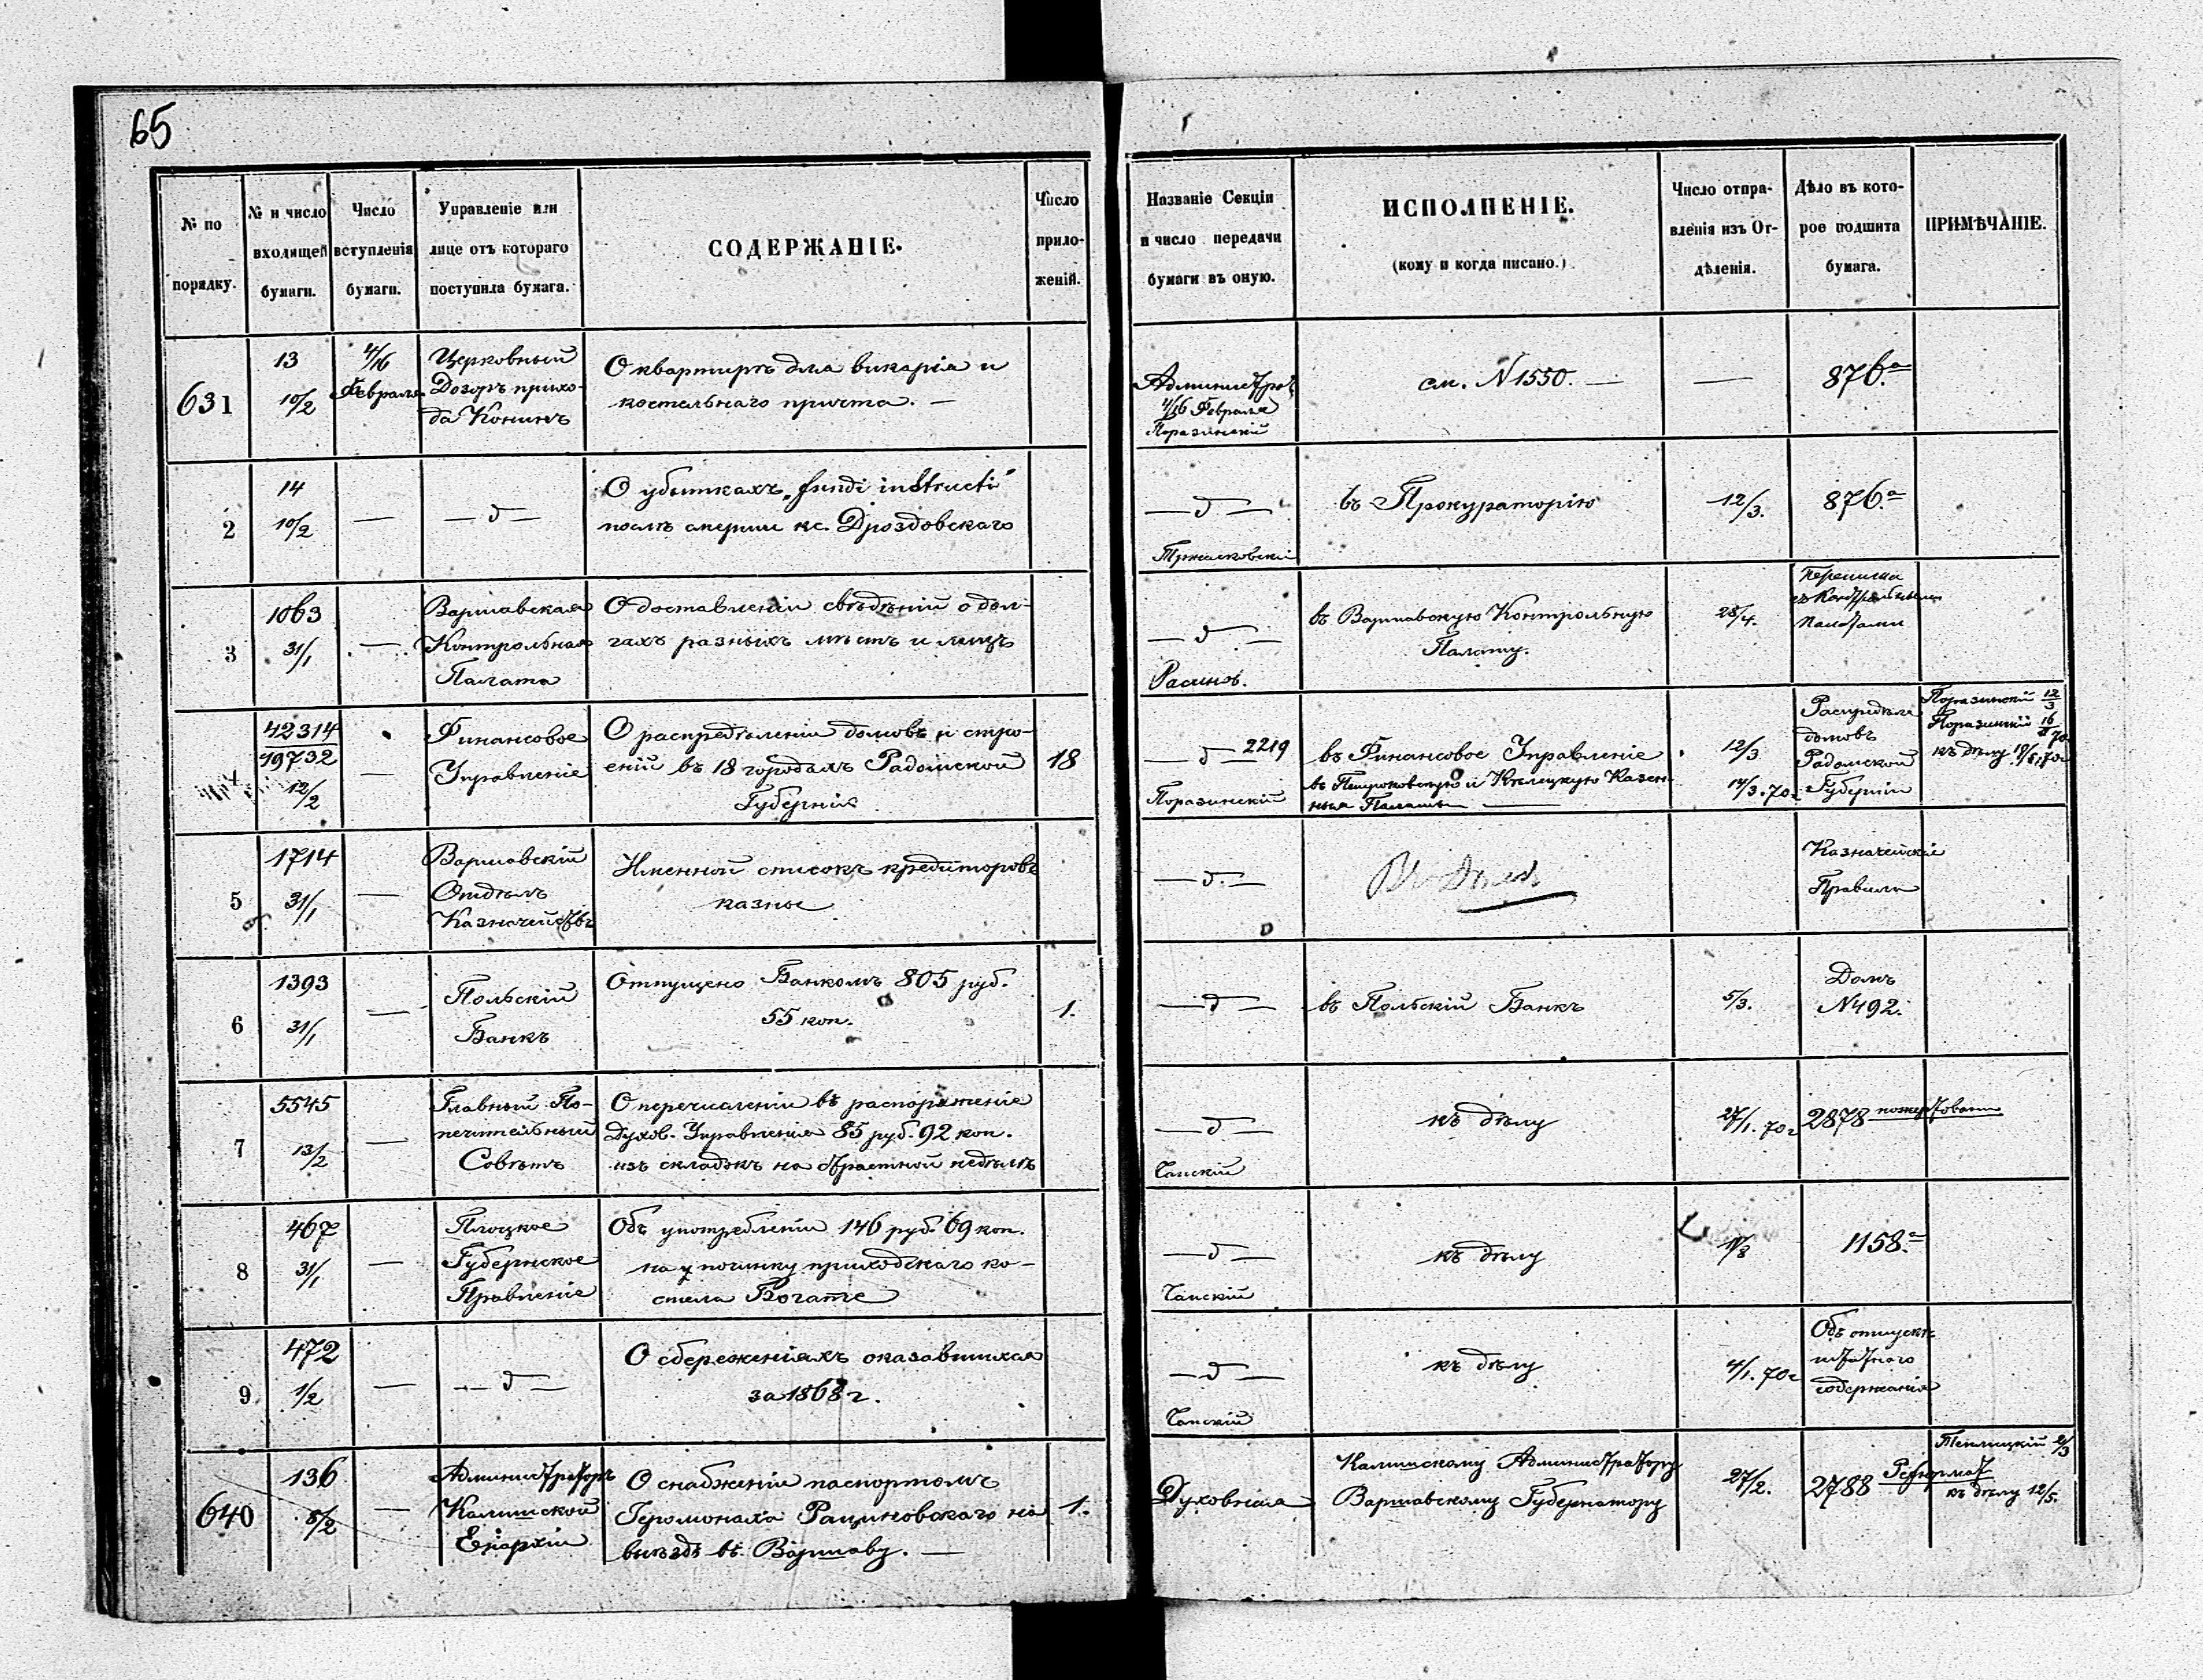 65
№ по порядку.
№ и число входящей бумаги.
Число вступленія бумаги.
Управленіе или лице отъ котораго поступила бумага.
СОДЕРЖАНІЕ.
Число приложеній.
Названіе Секціи и число передачи бумаги въ оную.
ИСПОЛНЕНІЕ.
(кому и когда писано.)
Число отправленія изъ Отдѣленія.
Дѣло въ которое подшита бумага.
ПРИМѢЧАНІЕ.
631
13
10/2
4/16 Февраля
Церковный
Дозоръ прихо-
да Конинъ
О квартирѣ для викарія и
костельнаго причта. —
Администрац
4/16 Февраля
Поразинскій
см. N 1550. —
—
876.а
2
14
10/2
—
— д —
О убыткахъ „fundi instructi"
послѣ смерти кс. Дроздовскаго
— д —
въ Прокураторію
12/3.
876.а
3
1063
31/1
—
Варшавская
Контрольная
Палата
О доставленіи свѣдѣній о дол-
гахъ разныхъ мѣстъ и лицъ
— д —
въ Варшавскую Контрольную
Палату.
28/4.
Переписка
съ Контрольными
Палатами
42314
19732
12/2
—
Финансовое
Управленіе
О распредѣленіи домовъ и стро-
еній въ 18 городахъ Радомской
Губерніи
18
— д — 2219
Поразинскій
въ Финансовое Управленіе
въ Петроковскую и Кѣлецкую Казен-
ныя Палаты —
12/3
14/3. 70г
Распредѣл
домовъ
Радомской
Губерніи
Поразинскій 12/3
Поразинскій
къ дѣлу
5
1714
31/1
—
Варшавскій
Отдѣлъ
Казначейства
Именной списокъ кредиторовъ
казны
— д. —
Къ дѣлу
Казначейскіе
Правила
6
1393
31/1
—
Польскій
Банкъ
Отпущено Банкомъ 805 руб.
55 коп.
1.
— д —
въ Польскій Банкъ
5/3.
Домъ
N 492.
7
5545
13/2
—
Главный По-
печительный
Совѣтъ
О перечисленіи въ распоряженіе
Духов. Управленія 85 руб. 92 коп.
изъ складокъ на страстной недѣлѣ
— д —
къ дѣлу
27/1. 70г
2878 пожертвован
8
467
31/1
—
Плоцкое
Губернское
Правленіе
Объ употребленіи 146 руб. 69 коп.
на починку приходскаго ко-
стела Рогате
— д —
къ дѣлу
1158.а
9
472
1/2
—
— д —
О сбереженіяхъ оказавшихся
за 1868 г.
— д —
къ дѣлу
4/1. 70г
Объ отпускѣ
штатнаго
содержанія
640
136
8/2
—
Администраторъ
Калишской
Епархіи
О снабженіи паспортомъ
Іеромонаха Рациновскаго на
выѣздъ въ Варшаву. —
1.
Духовная
Калишскому Администратору
Варшавскому Губернатору
27/2.
2788 Реформат
къ дѣлу 12/5.